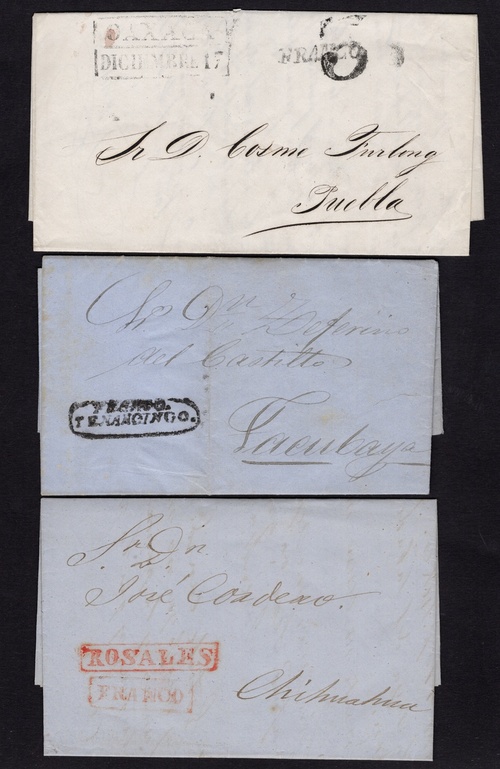 OAXACA
DICIEMBRE 17
FRANCO
Sr D. Cosme Furlong
Puebla
Sr Dn Zeferino
del Castillo
FRANCO.
TENANCINGO.
Tacubaya
Sr. Dn.
José Cordero.
ROSALES
FRANCO
Chihuahua